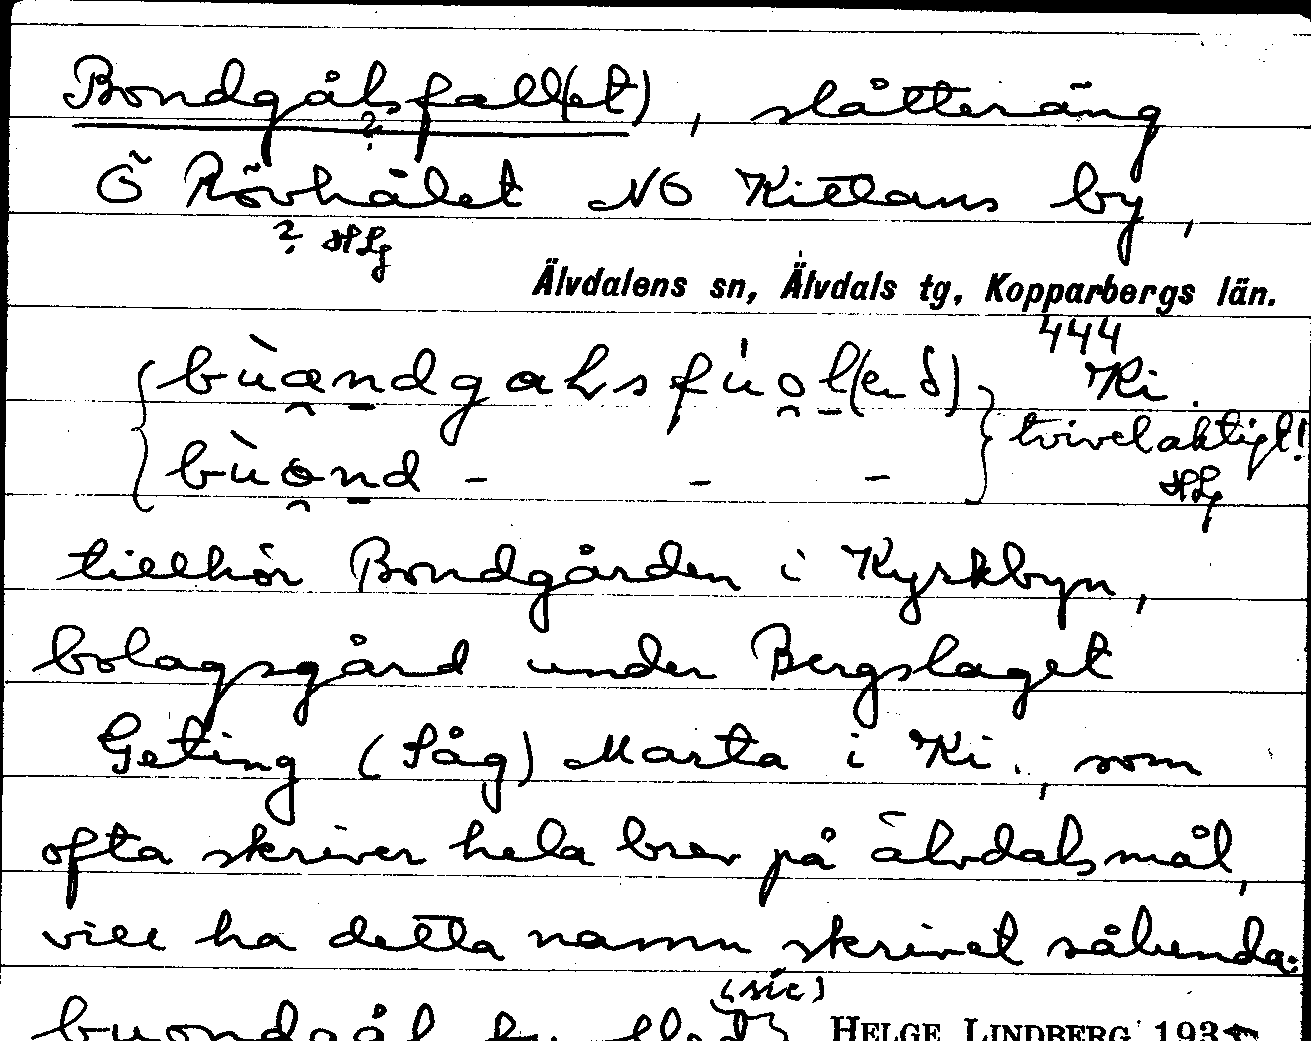 Bondgålsfall(et), slåtteräng
?
Ö Rövhålet NO Kittans by,
? HLg
Älvdalens sn, Älvdals tg, Kopparbergs län.
444
bùændgaḷsfu̍ol(eð) Ki.
bùond - - - tvivelaktigt!
HLg
tillhör Bondgården i Kyrkbyn,
bolagsgård under Bergslaget
Geting (Såg) Marta i Ki., som
ofta skriver hela brev på älvdalsmål,
vill ha detta namn skrivet sålunda:
(sic)
HELGE LINDBERG 193